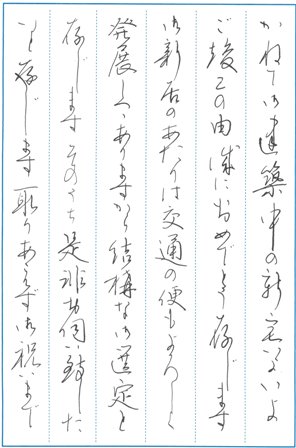 かねて御建築中の新宅いよいよ
ご竣工の由誠におめでとう存じます
御新居のあたりは交通の便もよろしく
発展しつゝありますから結構な御選定と
存じます そのうち是非お伺い致した
いと存じます 取りあえず御祝いまで